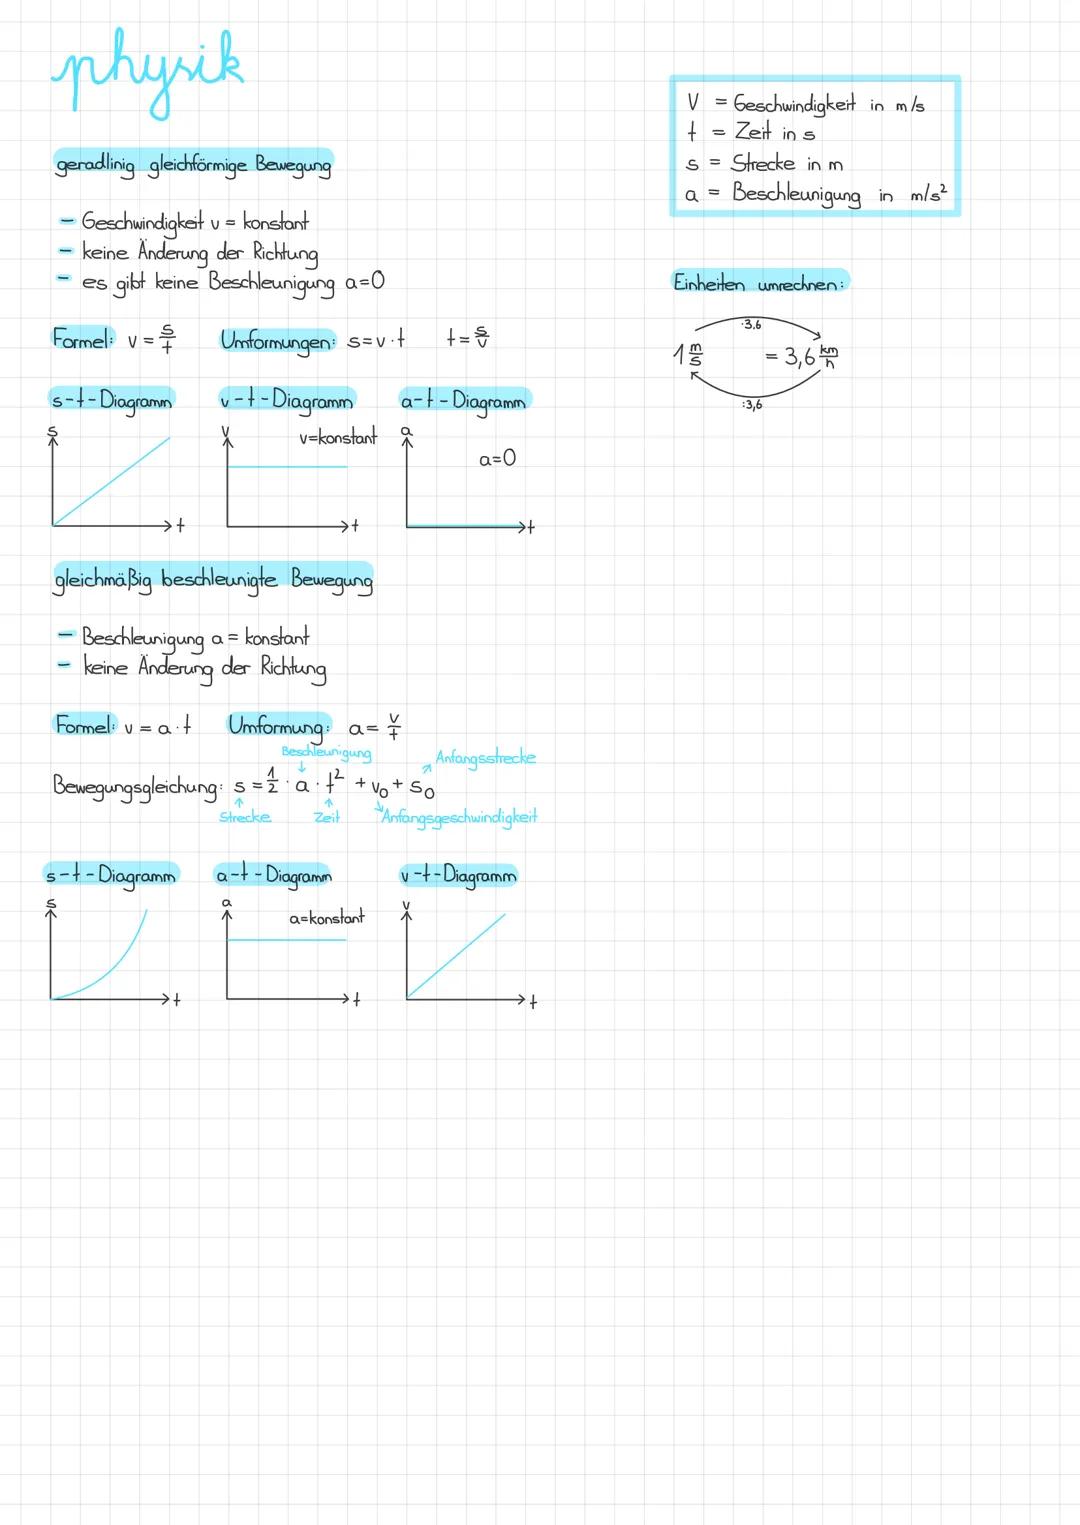 physik
geradlinig gleichförmige Bewegung
- Geschwindigkeit v = konstant
- keine Änderung der Richtung
- es gibt keine Beschleunigung a=0
Formel: v = s/t Umformungen: s=v·t t=s/v
s-t-Diagramm v-t-Diagramm a-t-Diagramm
s v v=konstant a
a=0
t t t
gleichmäßig beschleunigte Bewegung
- Beschleunigung a = konstant
- keine Änderung der Richtung
Formel: v = a·t Umformung: a = v/t
Beschleunigung Anfangsstrecke
Bewegungsgleichung: s = 1/2 · a · t² + v₀ + s₀
Strecke Zeit Anfangsgeschwindigkeit
s-t-Diagramm a-t-Diagramm v-t-Diagramm
s a a=konstant v
t t t
V = Geschwindigkeit in m/s
t = Zeit in s
s = Strecke in m
a = Beschleunigung in m/s²
Einheiten umrechnen:
·3,6
1 m/s = 3,6 km/h
:3,6